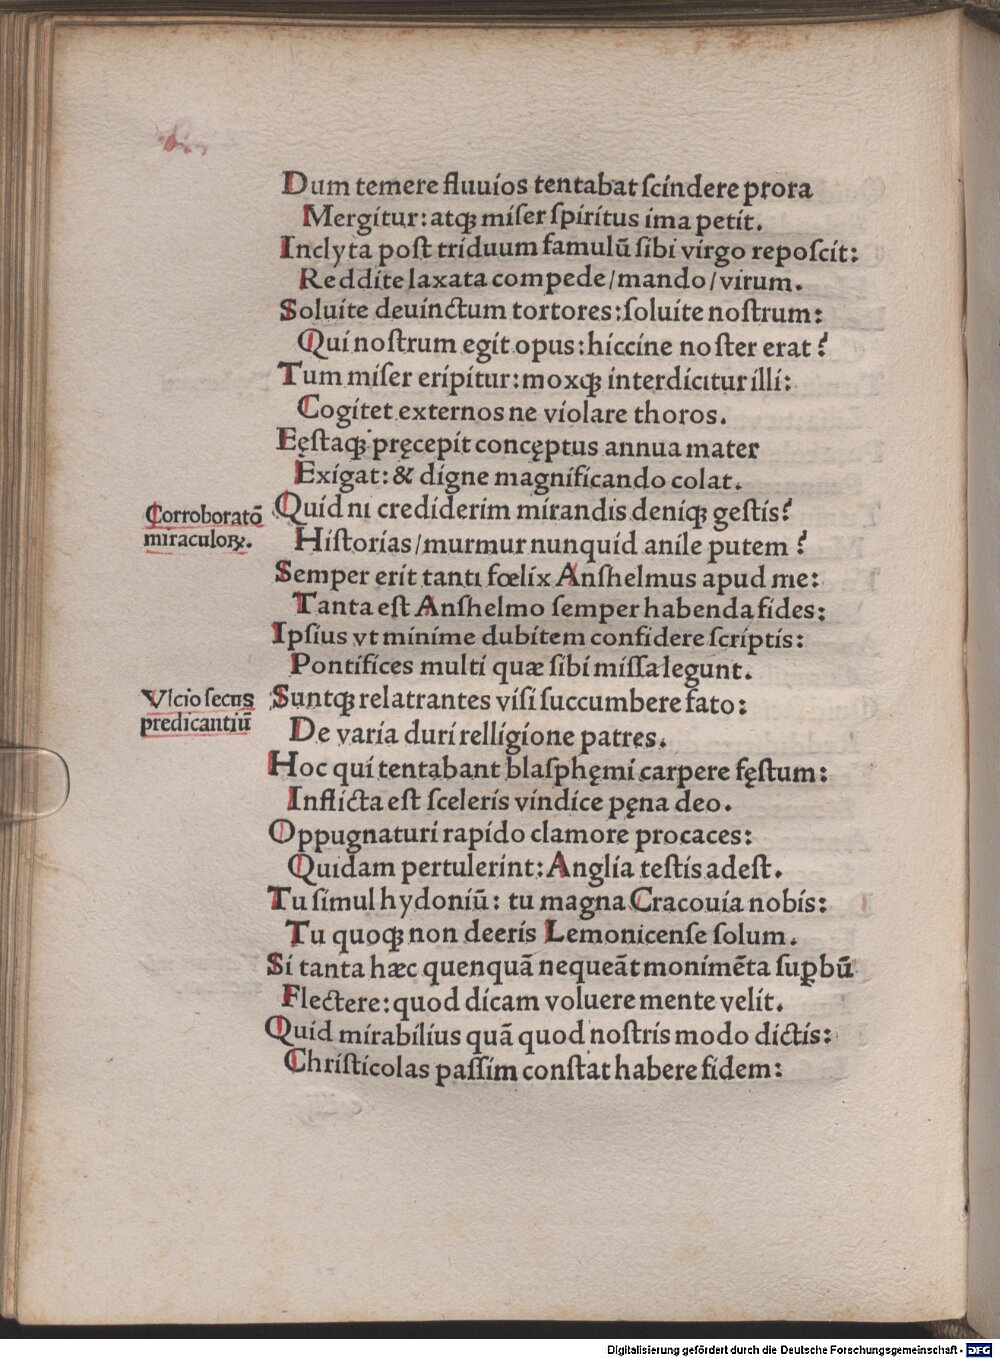 Dum temere fluuios tentabat ſcindere prora
Mergitur: atqꝫ miſer ſpiritus ima petit.
Inclyta poſt triduum famulū ſibi virgo repoſcit:
Reddite laxata compede/mando/virum.
Soluite deuinctum tortores: ſoluite noſtrum:
Qui noſtrum egit opus: hiccine noſter erat?
Tum miſer eripitur: moxqꝫ interdicitur illi:
Cogitet externos ne violare thoros.
Eęſtaqꝫ pręcepit concęptus annua mater
Exigat: & digne magnificando colat.
Corroboratō
miraculoꝝ.
Quid ni crediderim mirandis deniqꝫ geſtis?
Hiſtorias/murmur nunquid anile putem?
Semper erit tanti fœlix Anſhelmus apud me:
Tanta eſt Anſhelmo ſemper habenda fides:
Ipſius vt minime dubitem confidere ſcriptis:
Pontifices multi quæ ſibi miſſa legunt.
Vlcio ſecus
predicantiū
Suntqꝫ relatrantes viſi ſuccumbere fato:
De varia duri relligione patres.
Hoc qui tentabant blaſphęmi carpere fęſtum:
Inflicta eſt ſceleris vindice pęna deo.
Oppugnaturi rapido clamore procaces:
Quidam pertulerint: Anglia teſtis adeſt.
Tu ſimul hydoniū: tu magna Cracouia nobis:
Tu quoqꝫ non deeris Lemonicenſe ſolum.
Si tanta hæc quenquā nequeāt monimēta ſuꝑbū
Flectere: quod dicam voluere mente velit.
Quid mirabilius quā quod noſtris modo dictis:
Chriſticolas paſſim conſtat habere fidem:
Digitalisierung gefördert durch die Deutsche Forschungsgemeinschaft - DFG